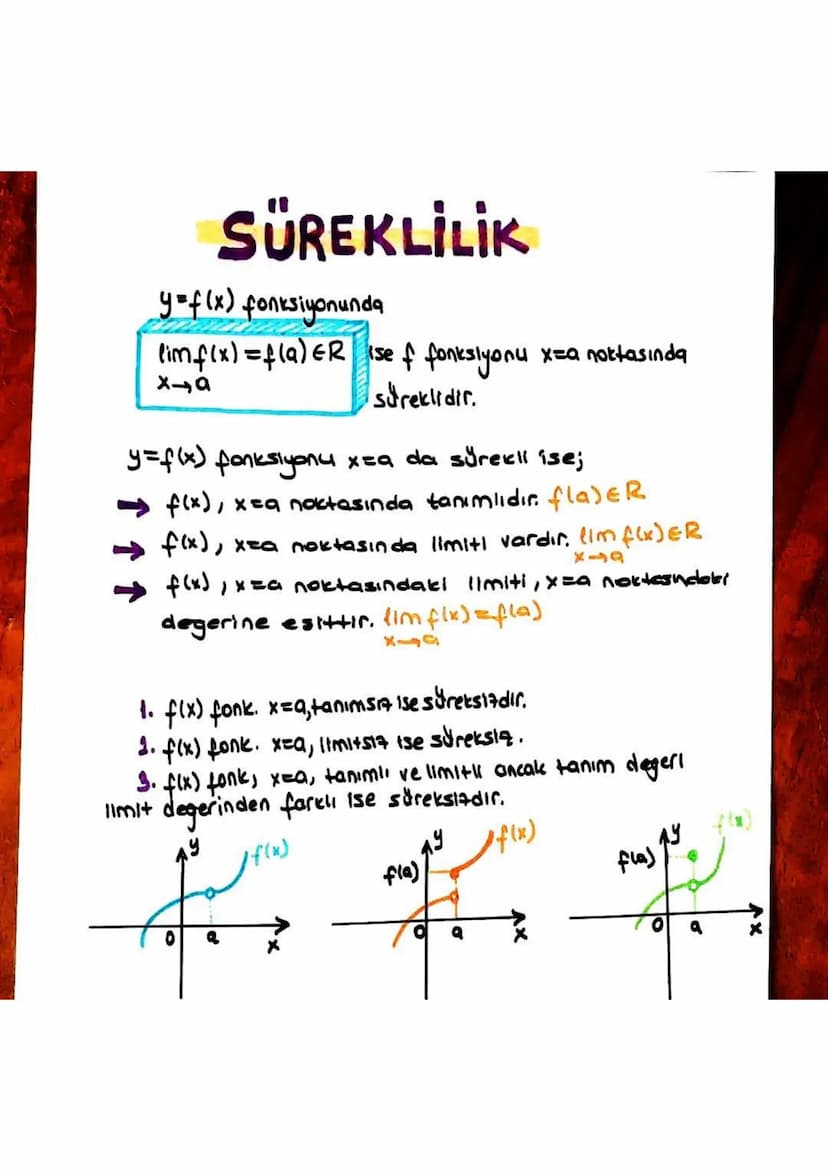 SÜREKLİLİK
y=f(x) fonksiyonunda
lim f(x) = f(a) ∈ R ise f fonksiyonu x=a noktasında
x→a
süreklidir.
y=f(x) fonksiyonu x=a da sürekli ise;
→ f(x), x=a noktasında tanımlıdır. f(a) ∈ R
→ f(x), x=a noktasında limiti vardır. lim f(x) ∈ R
x→a
→ f(x), x=a noktasındaki limiti, x=a noktasındaki
degerine esittir. lim f(x) = f(a)
x→a
1. f(x) fonk. x=a, tanımsız ise süreksizdir.
2. f(x) fonk. x=a, limitsiz ise süreksiz.
3. f(x) fonk, x=a, tanımlı ve limitli ancak tanım degeri
limit degerinden farklı ise süreksizdir.
y f(x) 0 a x
y f(x) f(a) 0 a x
y f(x) f(a) 0 a x